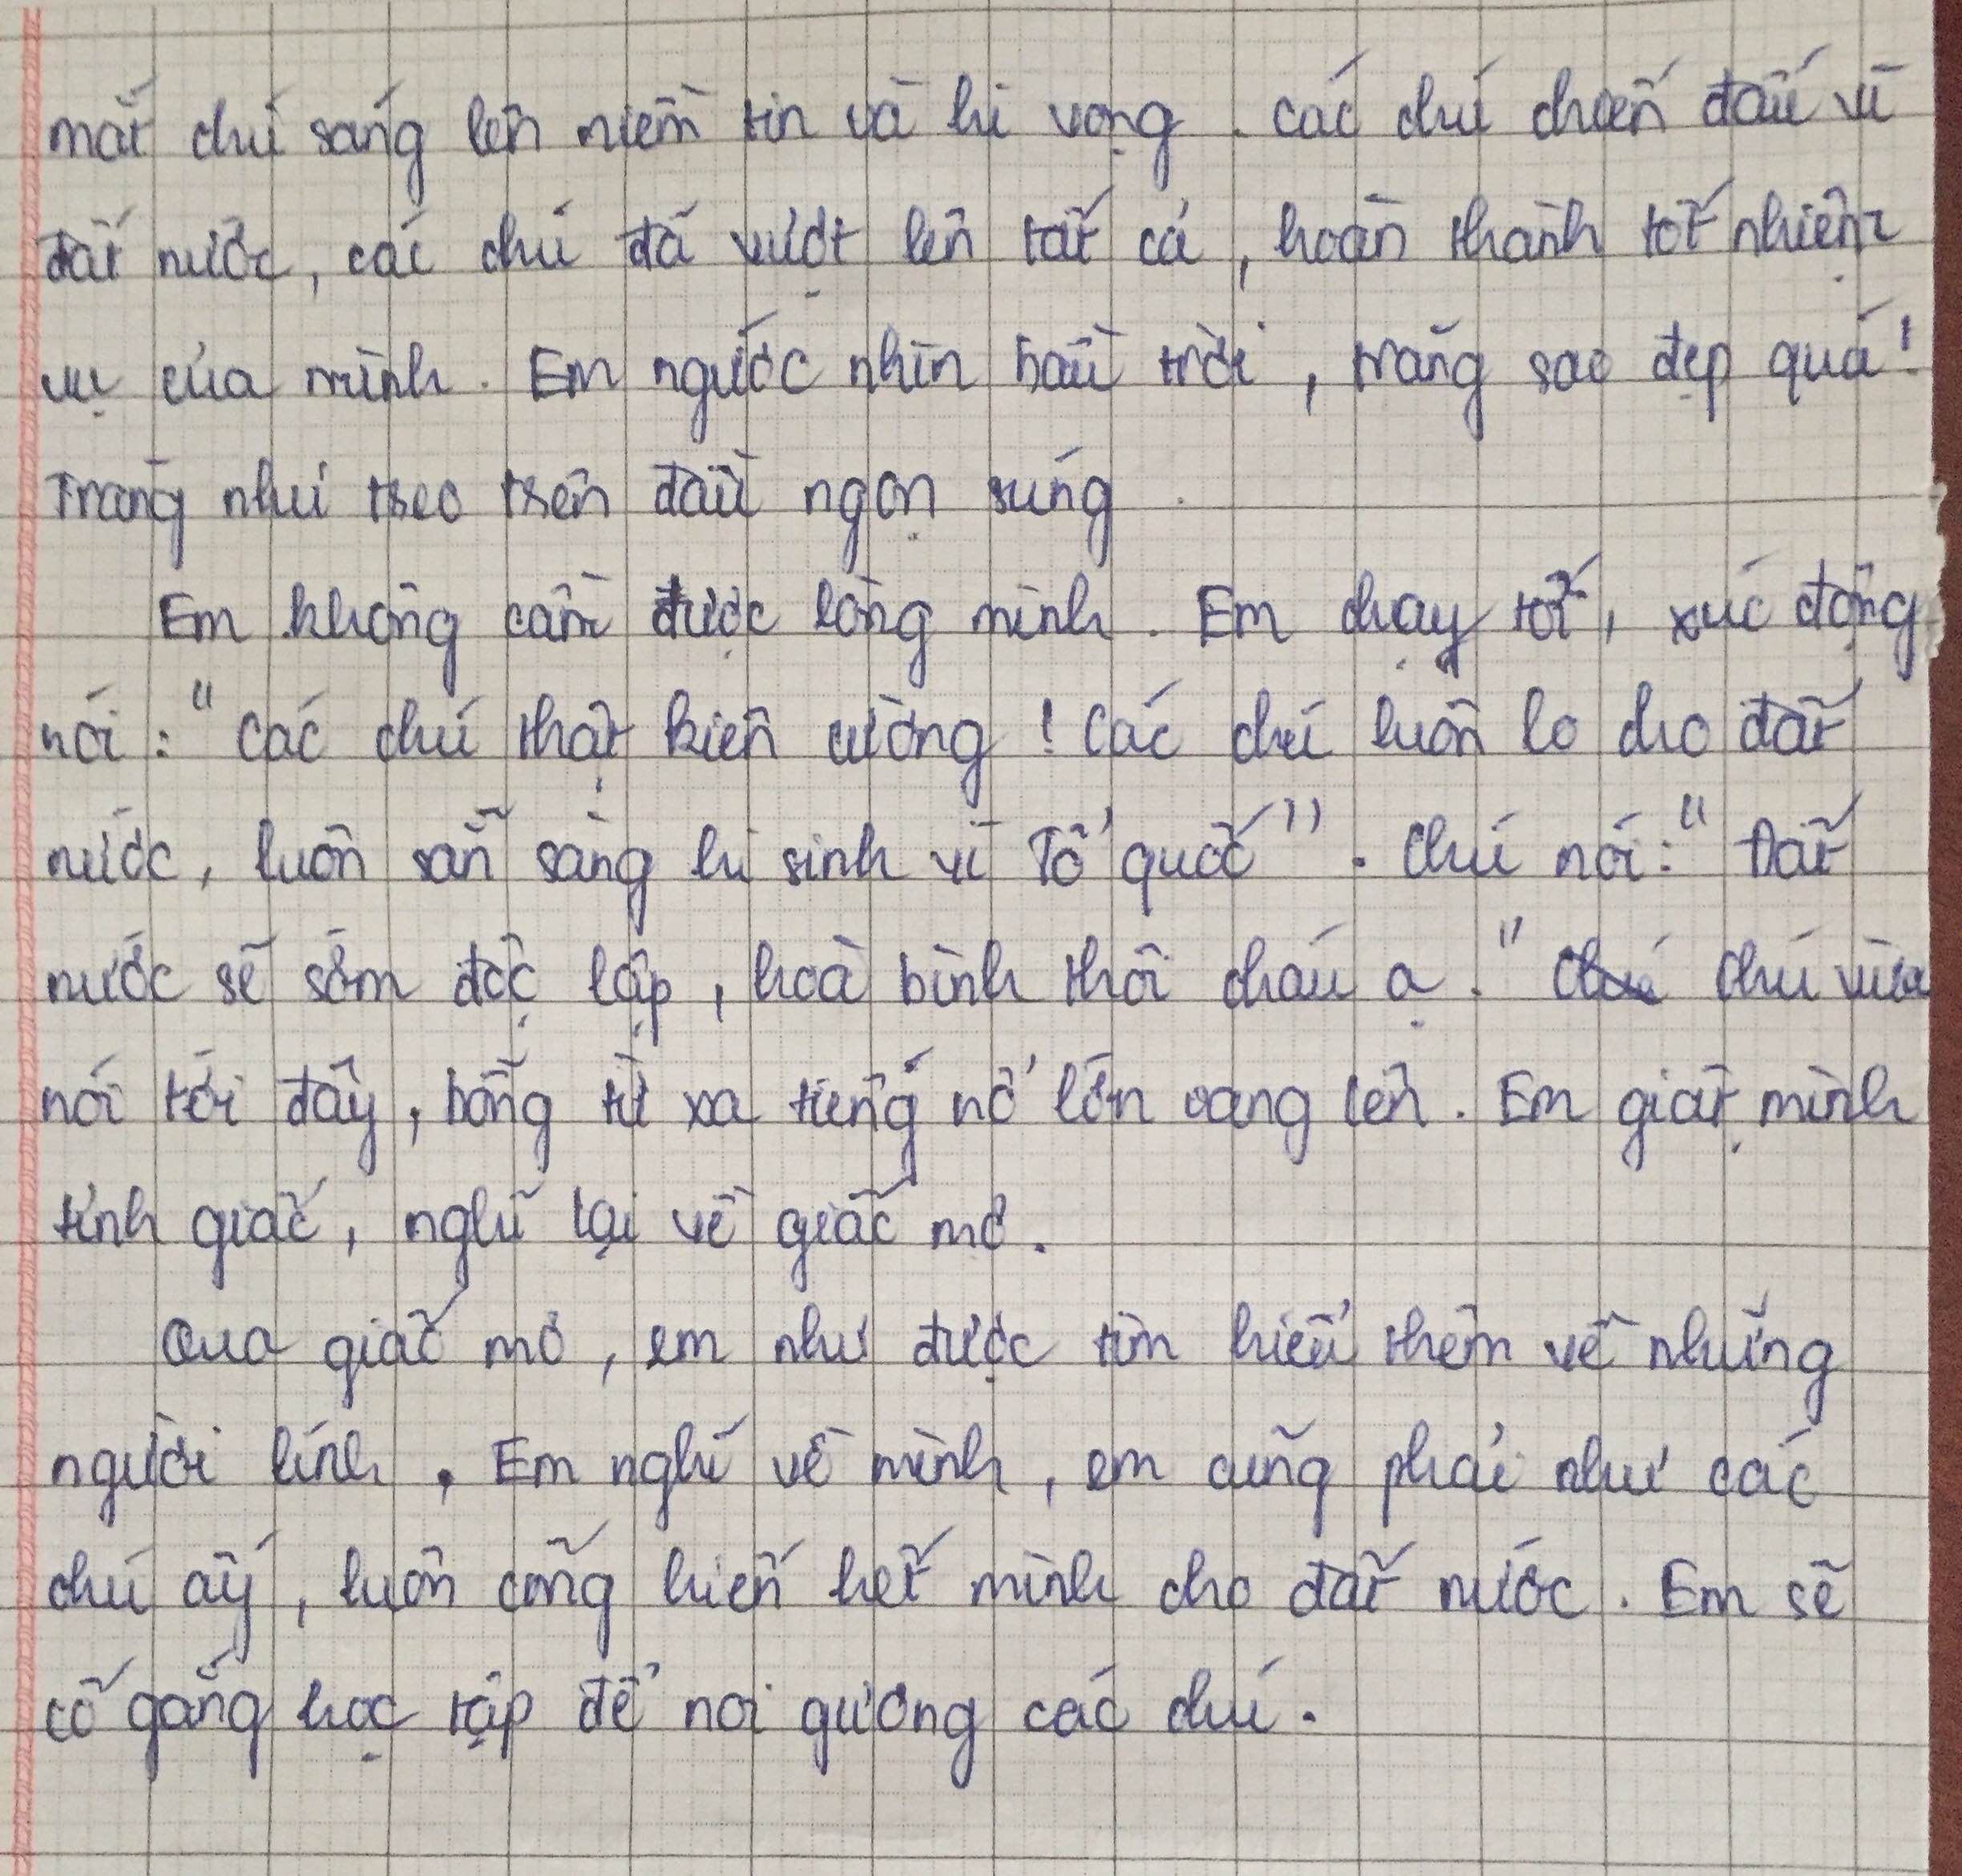 mắt chú sáng lên niềm tin và hi vọng. Các chú chiến đấu vì
đất nước, các chú đã vượt lên tất cả, hoàn thành tốt nhiệm
vụ của mình. Em ngước nhìn bầu trời, trăng sao đẹp quá!
Trăng như treo trên đầu ngọn súng.
Em không cầm được lòng mình. Em chạy tới, xúc động
nói: "Các chú thật kiên cường! Các chú luôn lo cho đất
nước, luôn sẵn sàng hi sinh vì Tổ quốc". Chú nói: "Đất
nước sẽ sớm độc lập, hoà bình thôi cháu ạ." Chú vừa
nói tới đây, bỗng từ xa tiếng nổ lớn vang lên. Em giật mình
tỉnh giấc, nghĩ lại về giấc mơ.
Qua giấc mơ, em như được tìm hiểu thêm về những
người lính. Em nghĩ về mình, em cũng phải như các
chú ấy, luôn cống hiến hết mình cho đất nước. Em sẽ
cố gắng học tập để noi gương các chú.